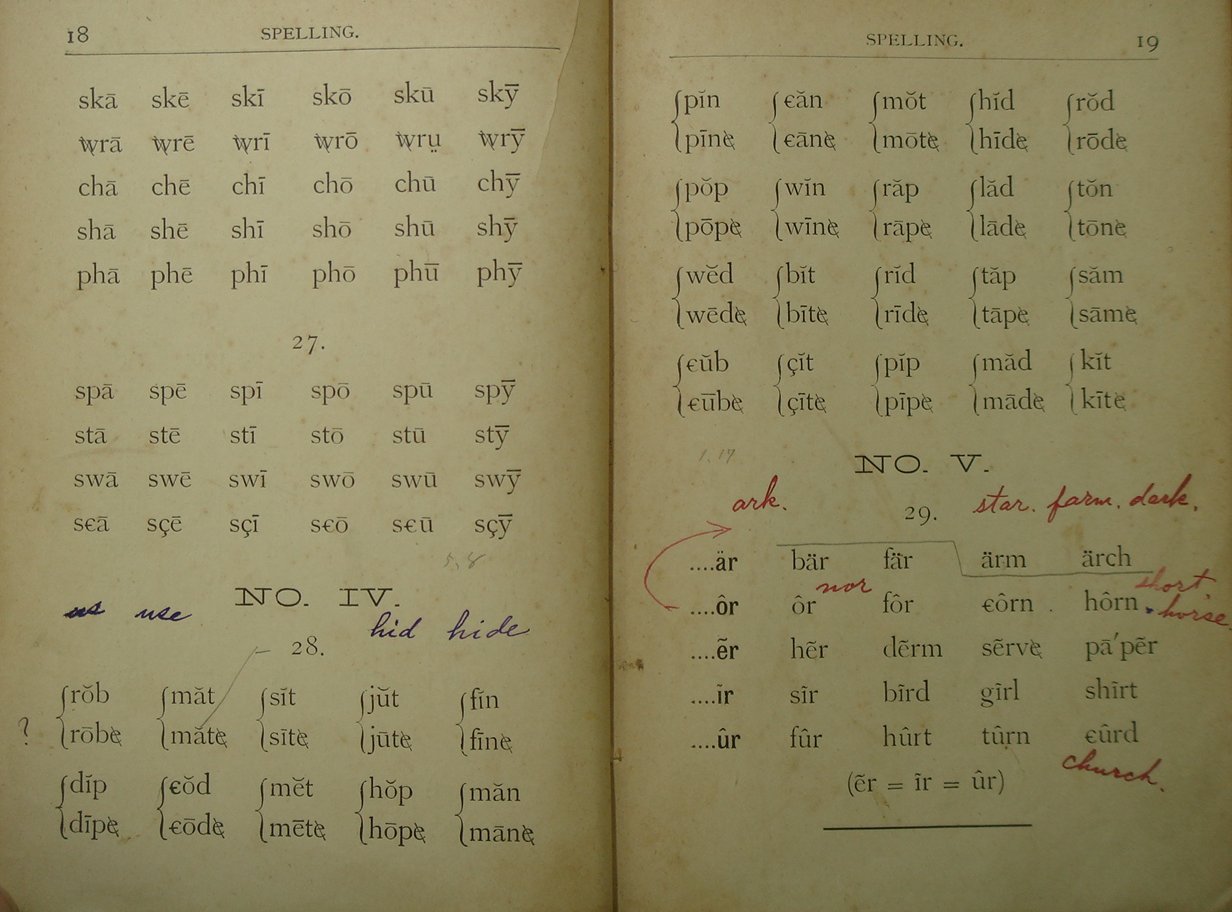 18 SPELLING.
skā skē skī skō skū skȳ
w̸rā w̸rē w̸rī w̸rō w̸rṳ w̸rȳ
chā chē chī chō chū chȳ
shā shē shī shō shū shȳ
phā phē phī phō phū phȳ
27.
spā spē spī spō spū spȳ
stā stē stī stō stū stȳ
swā swē swī swō swū swȳ
s̶cā sçē sçī s̶cō s̶cū sçȳ
5,8
NO. IV.
us use hid hide
28.
rŏb măt sĭt jŭt fĭn
? rōbe̸ măte̸ sīte̸ jūte̸ fīne̸
dĭp c̵ŏd mĕt hŏp măn
dīpe̸ c̵ōde̸ mēte̸ hōpe̸ māne̸
SPELLING. 19
pĭn c̵ăn mŏt hĭd rŏd
pīne̸ c̵āne̸ mōte̸ hīde̸ rōde̸
pŏp wĭn răp lăd tŏn
pōpe̸ wīne̸ rāpe̸ lāde̸ tōne̸
wĕd bĭt rĭd tăp săm
wēde̸ bīte̸ rīde̸ tāpe̸ sāme̸
c̵ŭb çĭt pĭp măd kĭt
c̵ūbe̸ çīte̸ pīpe̸ māde̸ kīte̸
1.17
NO. V.
ark. star. farm. dark.
29.
....är bär fär ärm ärch
nor short
....ôr ôr fôr c̵ôrn hôrn horse
....ẽr hẽr dẽrm sẽrve̸ pā′pẽr
....ĩr sĩr bĩrd gĩrl shĩrt
....ûr fûr hûrt tûrn c̵ûrd
church.
(ẽr = ĩr = ûr)